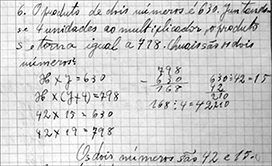 6. O produto de dois números é 630. Juntando
se 4 unidades ao multiplicador, o produto
se torna igual a 798. Quais são os dois
números:
X × y = 630
X × (y+4) = 798
42 × 15 = 630
42 × 19 = 798
798
- 630
168
168 : 4 = 42
630 : 42 = 15
210
Os dois números são 42 e 15.